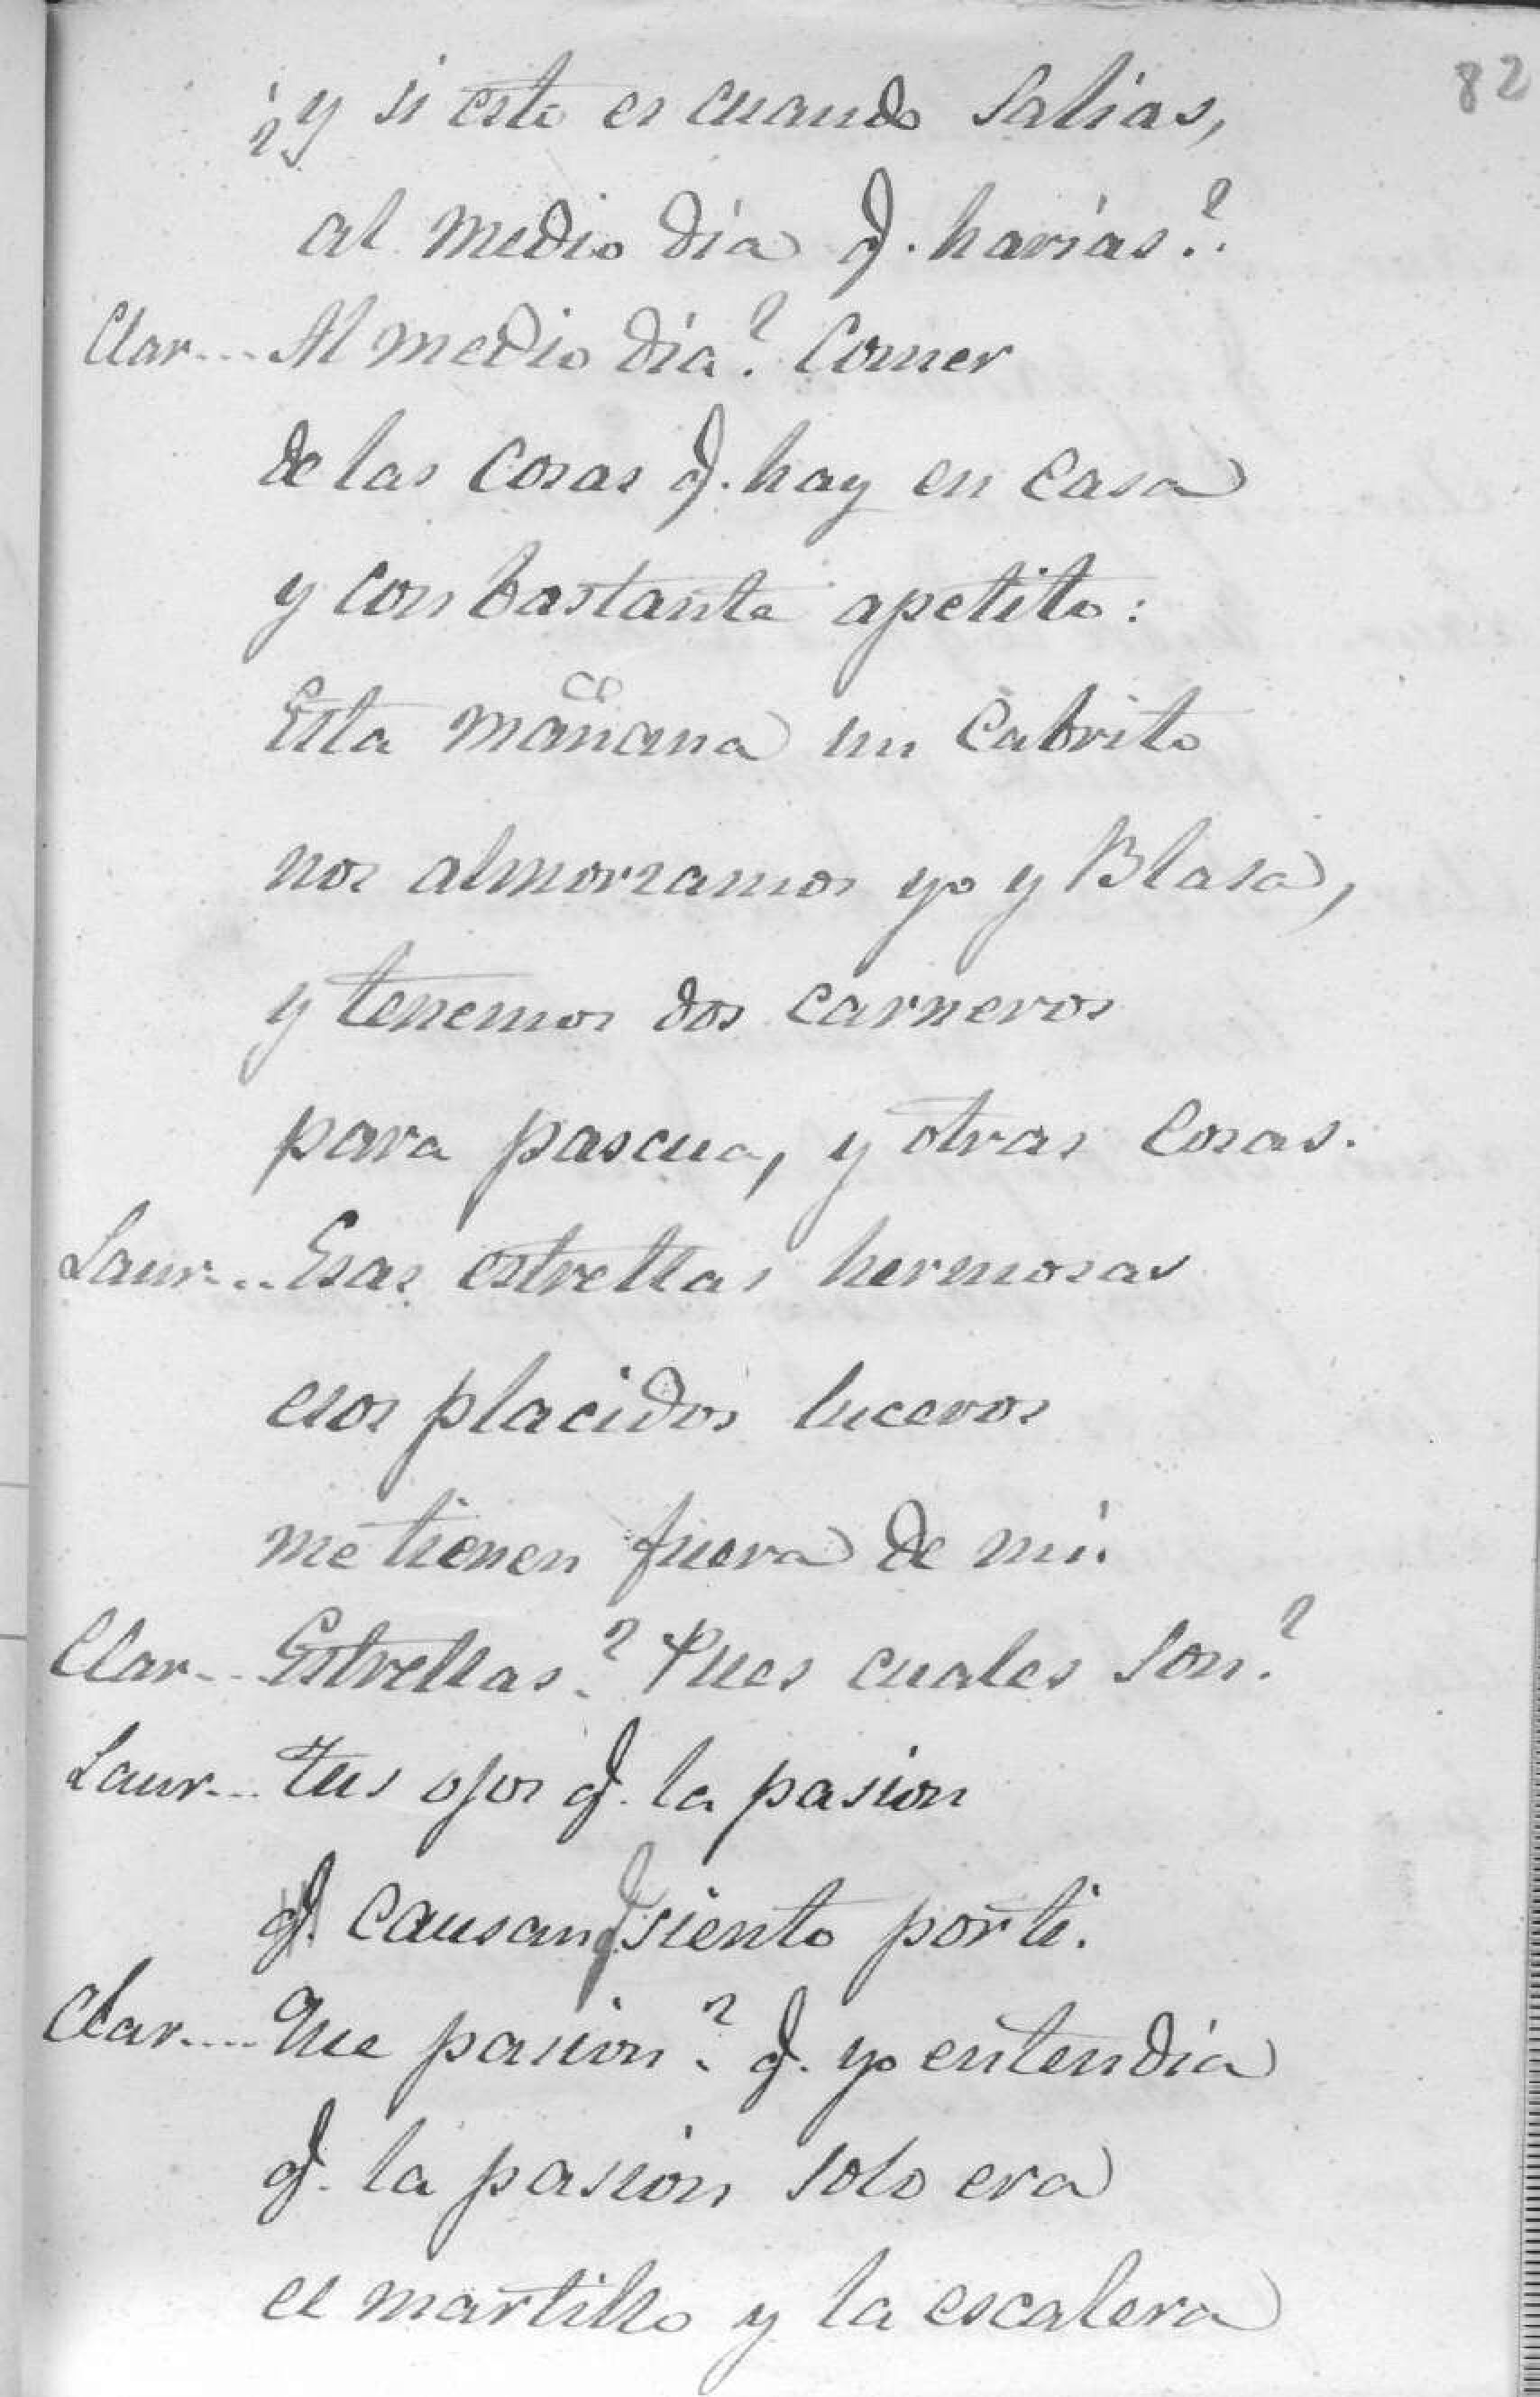 82
¿y si esto es cuando salias,
al medio dia q. harías?
Clar... Al medio dia? Comer
de las cosas q. hay en casa
y con bastante apetito:
Esta mañana un Cabrito
nos almorzamos yo y Blasa,
y tenemos dos carneros
para pascua, y otras cosas.
Laur... Esas estrellas hermosas
esos placidos luceros
me tienen fuera de mí.
Clar... Estrellas? Pues cuales son?
Laur... tus ojos q. la pasion
q. causan q. siento por ti.
Clar.... Que pasion? q. yo entendia
q. la pasion solo era
el martillo y la escalera